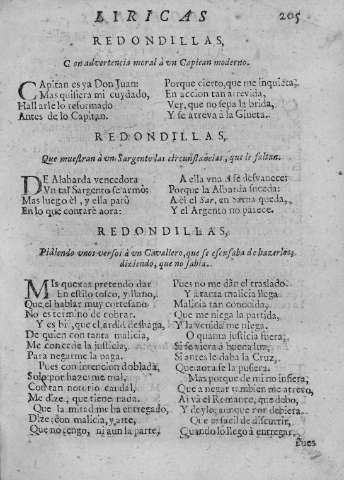 LIRICAS 205
REDONDILLAS,
Con advertencia moral à vn Capitan moderno.
CApitan es ya Don Juan:
Mas quisiera mi cuydado,
Hallarle lo reformado
Antes de lo Capitan.
Porque cierto, que me inquieta,
En accion tan atrevida,
Ver, que no sepa la brida,
Y se atreva à la Gineta.
REDONDILLAS,
Que muestran à vn Sargento las circunstãcias, que le faltan.
DE Alabarda vencedora
Vn tal Sargento se armò;
Mas luego èl, y ella parò
En lo que contarè aora:
A ella vna A se desvanece;
Porque la Albarda suceda:
A èl el Sar, en Sarna queda,
Y el Argento no parece.
REDONDILLAS,
Pidiendo vnos versos à vn Cavallero, que se escusaba de hazerlos,
diziendo, que no sabia.
MIs quexas pretendo dar
En estilo tosco, y llano,
Que el hablar muy cortesano
No es termino de cobrar.
Y es bi, que el ardid deshaga,
De quien con tanta malicia,
Me concede la justicia,
Para negarme la paga.
Pues con intencion doblada,
Solo por hazerme mal,
Con tan notorio caudal,
Me dize, que tiene nada.
Que la mitad me ha entregado,
Dize con malicia, y arte,
Que no tengo, ni aun la parte,
Pues no me dan el traslado.
Y à tanta malicia llega
Malicia tan conocida,
Que me niega la partida,
Y la venida me niega.
O quanta justicia fuera,
Si se viera à buena luz,
Si antes le daba la Cruz,
Que aora se la pusiera.
Mas porque de mi no infiera,
Que à negar tambien me atrevo,
Ai và el Romance, que debo,
Y doylo, aunque no debiera.
Que es facil de discurrir,
Quando lo llego à entregar,
Pues